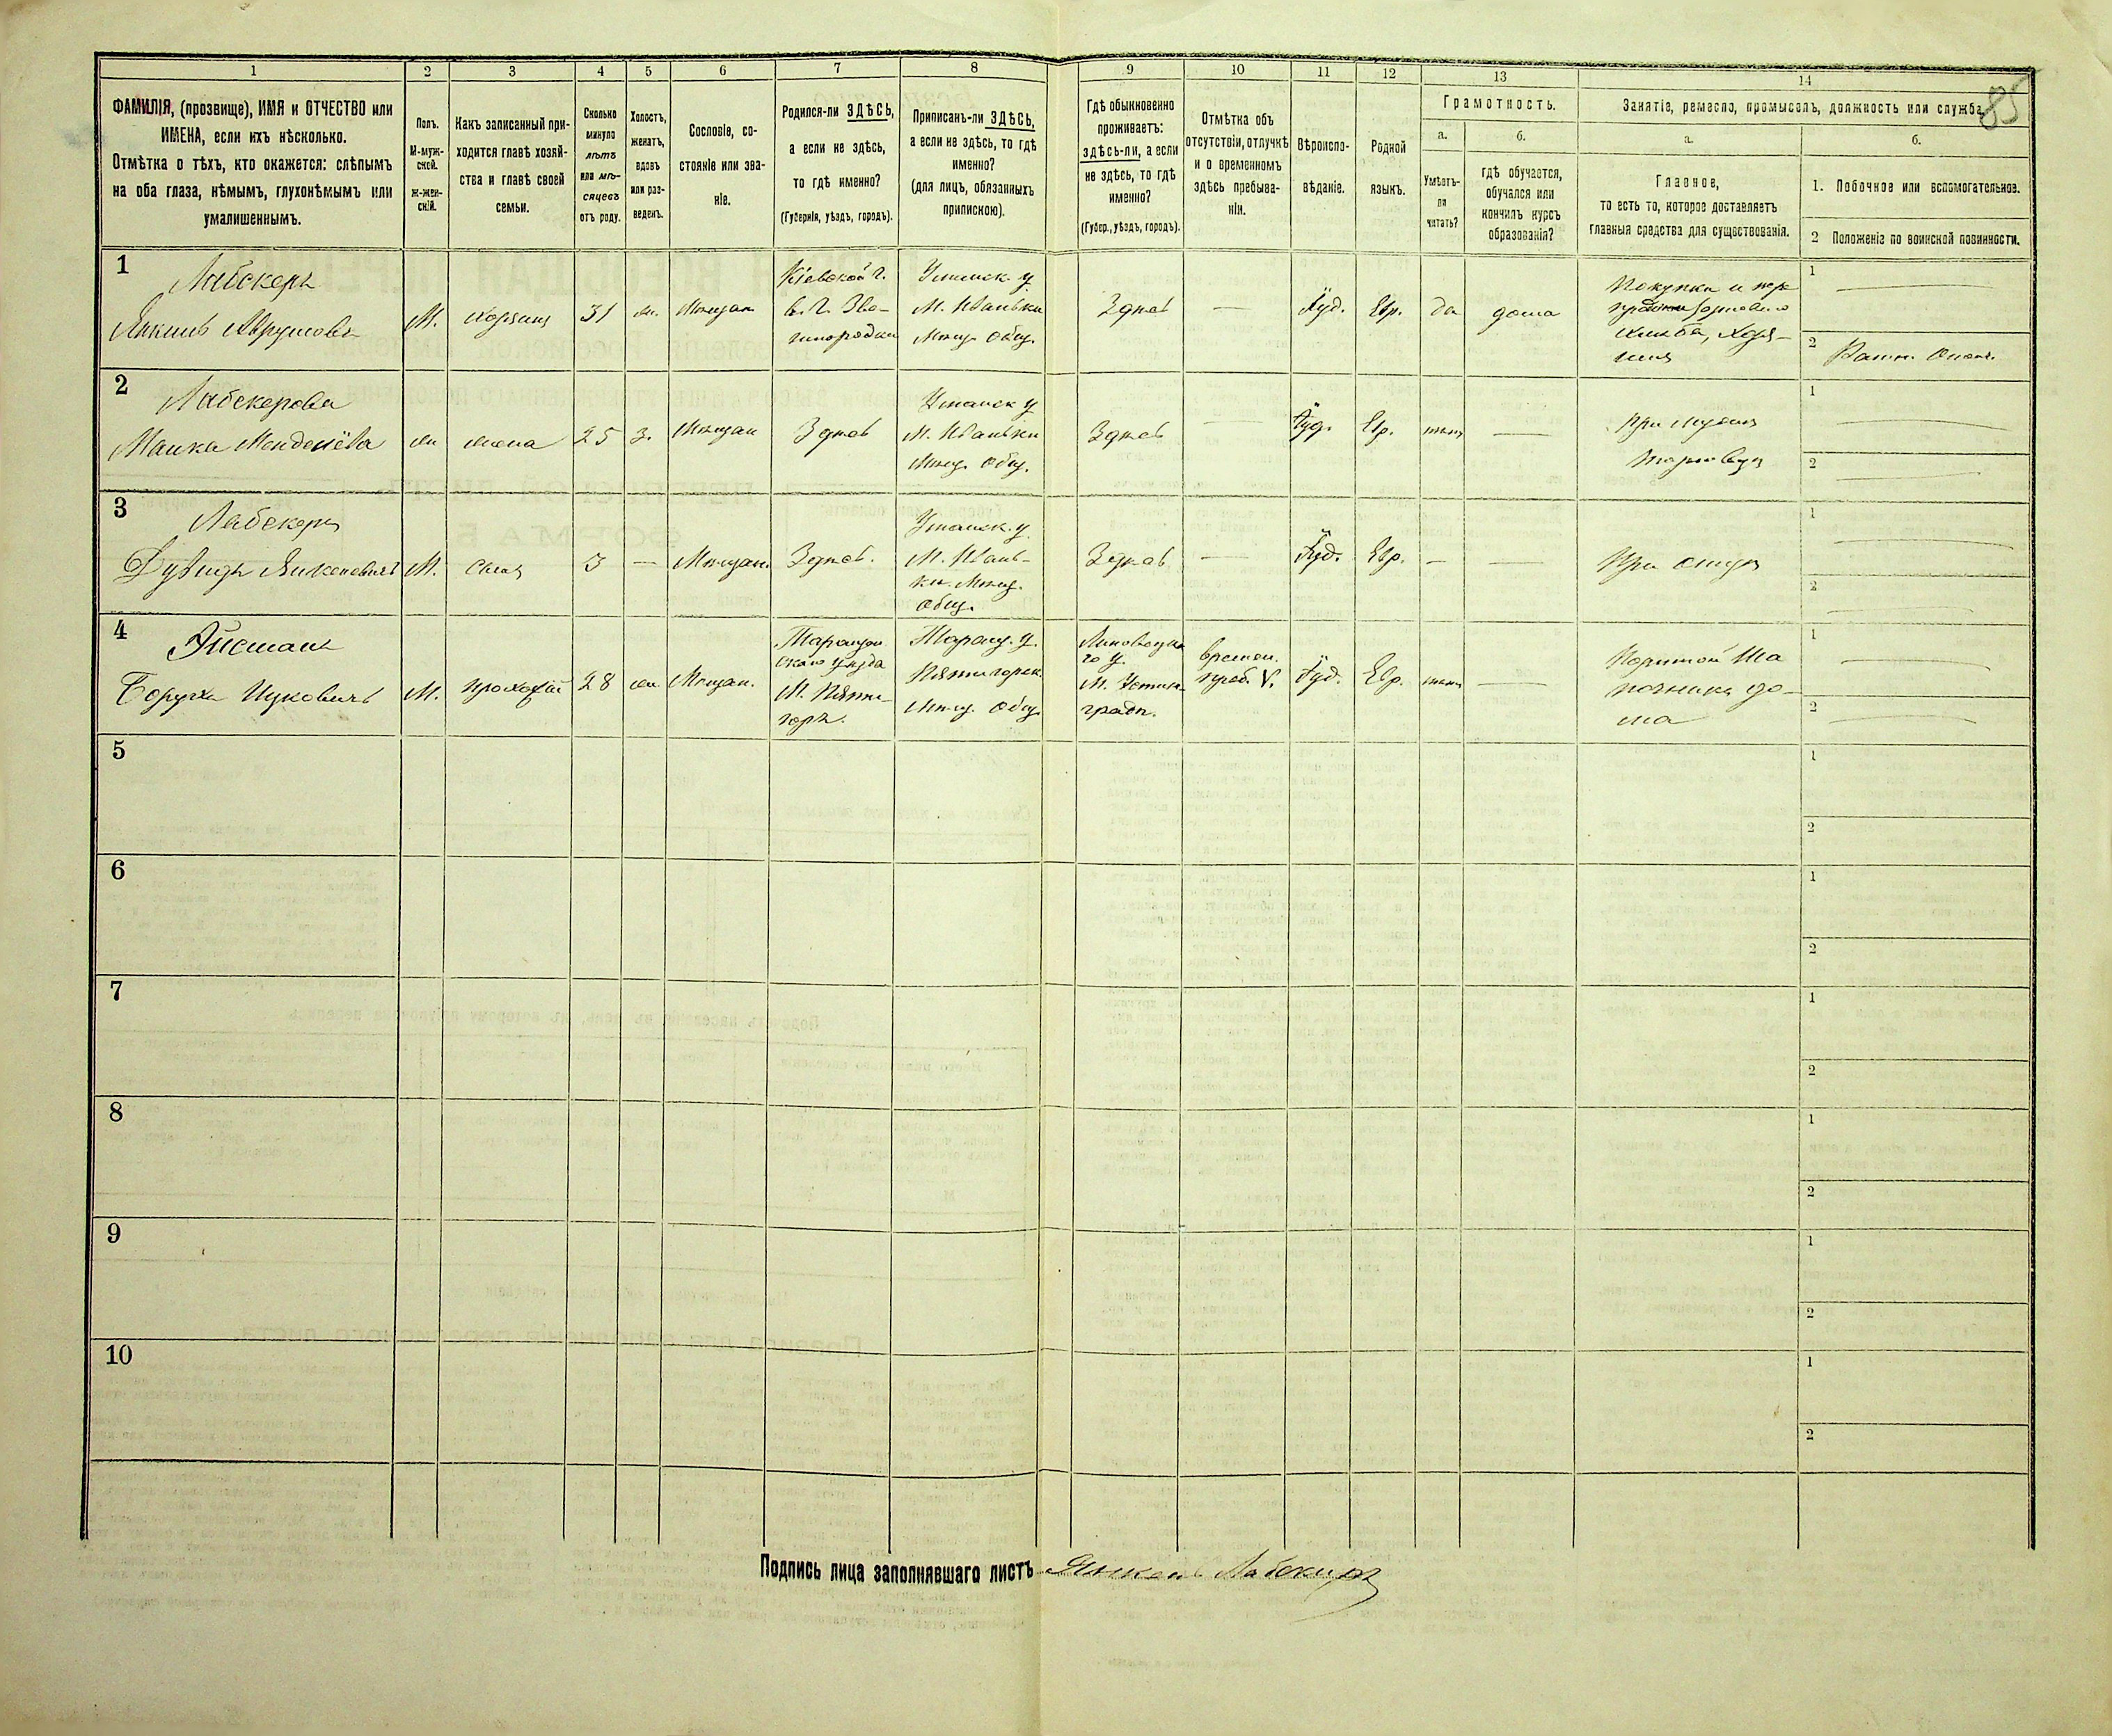 85
1 2 3 4 5 6 7 8 9 10 11 12 13 14
ФАМИЛІЯ, (прозвище), ИМЯ и ОТЧЕСТВО или
ИМЕНА, если ихъ нѣсколько.
Отмѣтка о тѣхъ, кто окажется: слѣпымъ
на оба глаза, нѣмымъ, глухонѣмымъ или
умалишеннымъ.
Полъ.
М-муж-
ской.
Ж-жен-
скій.
Какъ записанный при-
ходится главѣ хозяй-
ства и главѣ своей
семьи.
Сколько
минуло
лѣтъ
или мѣ-
сяцевъ
отъ роду.
Холостъ,
женатъ,
вдовъ
или раз-
веденъ.
Сословіе, со-
стояніе или зва-
ніе.
Родился-ли ЗДѢСЬ,
а если не здѣсь,
то гдѣ именно?
(Губернія, уѣздъ, городъ).
Приписанъ-ли ЗДѢСЬ,
а если не здѣсь, то гдѣ
именно?
(для лицъ, обязанныхъ
припискою).
Гдѣ обыкновенно
проживаетъ:
здѣсь-ли, а если
не здѣсь, то гдѣ
именно?
(Губер., уѣздъ, городъ).
Отмѣтка объ
отсутствіи, отлучкѣ
и о временномъ
здѣсь пребыва-
ніи.
Вѣроиспо-
вѣданіе.
Родной
языкъ.
Грамотность.
а.
Умѣетъ-
ли
читать?
б.
гдѣ обучается,
обучался или
кончилъ курсъ
образованія?
Занятіе, ремесло, промыселъ, должность или служба.
а.
Главное,
то есть то, которое доставляетъ
главныя средства для существованія.
б.
1. Побочное или вспомогательное.
2 Положеніе по воинской повинности.
1
Лабскеръ
Янкель Аврумовъ
М.
хозяинъ
31
жен.
Мѣщан.
Кіевской г.
в. г. Зве-
нигородки
Уманск. у.
М. Иваньки
Мѣщ. Общ.
Здѣсь
—
Іуд.
Евр.
да
дома
хлѣба, хозя-
инъ
1
—
2
Ратн. Ополч.
2
Лабскерова
жена
25
з.
Мѣщан
Здѣсь
Уманск. у
М. Иваньки
Мѣщ. Общ.
Здѣсь
—
Іуд.
Евр.
нѣтъ
—
При мужѣ
1
—
2
—
3
Лабскеръ
Дувидъ Янкелевичъ
М.
сынъ
3
—
Мѣщан.
Здѣсь.
Уманск. у.
М. Ивань-
ки Мѣщ.
Общ.
Здѣсь
—
Іуд.
Евр.
—
—
При отцѣ
1
—
2
—
4
Борухъ Ицковичъ
М.
прохожій
28
жен
Мѣщан.
Таращан
скаго уѣзда
М. Пяти-
горъ.
Таращ. у.
Пятигорск.
Мѣщ. Общ.
Липовецка
го у.
М. Устин-
градъ.
времен.
преб. V.
Іуд.
Евр.
нѣтъ
—
Портной Ша
почникъ до-
ма
1
—
2
—
5
1
2
6
1
2
7
1
2
8
1
2
9
1
2
10
1
2
Подпись лица заполнявшаго листъ Янкель Лабскеръ